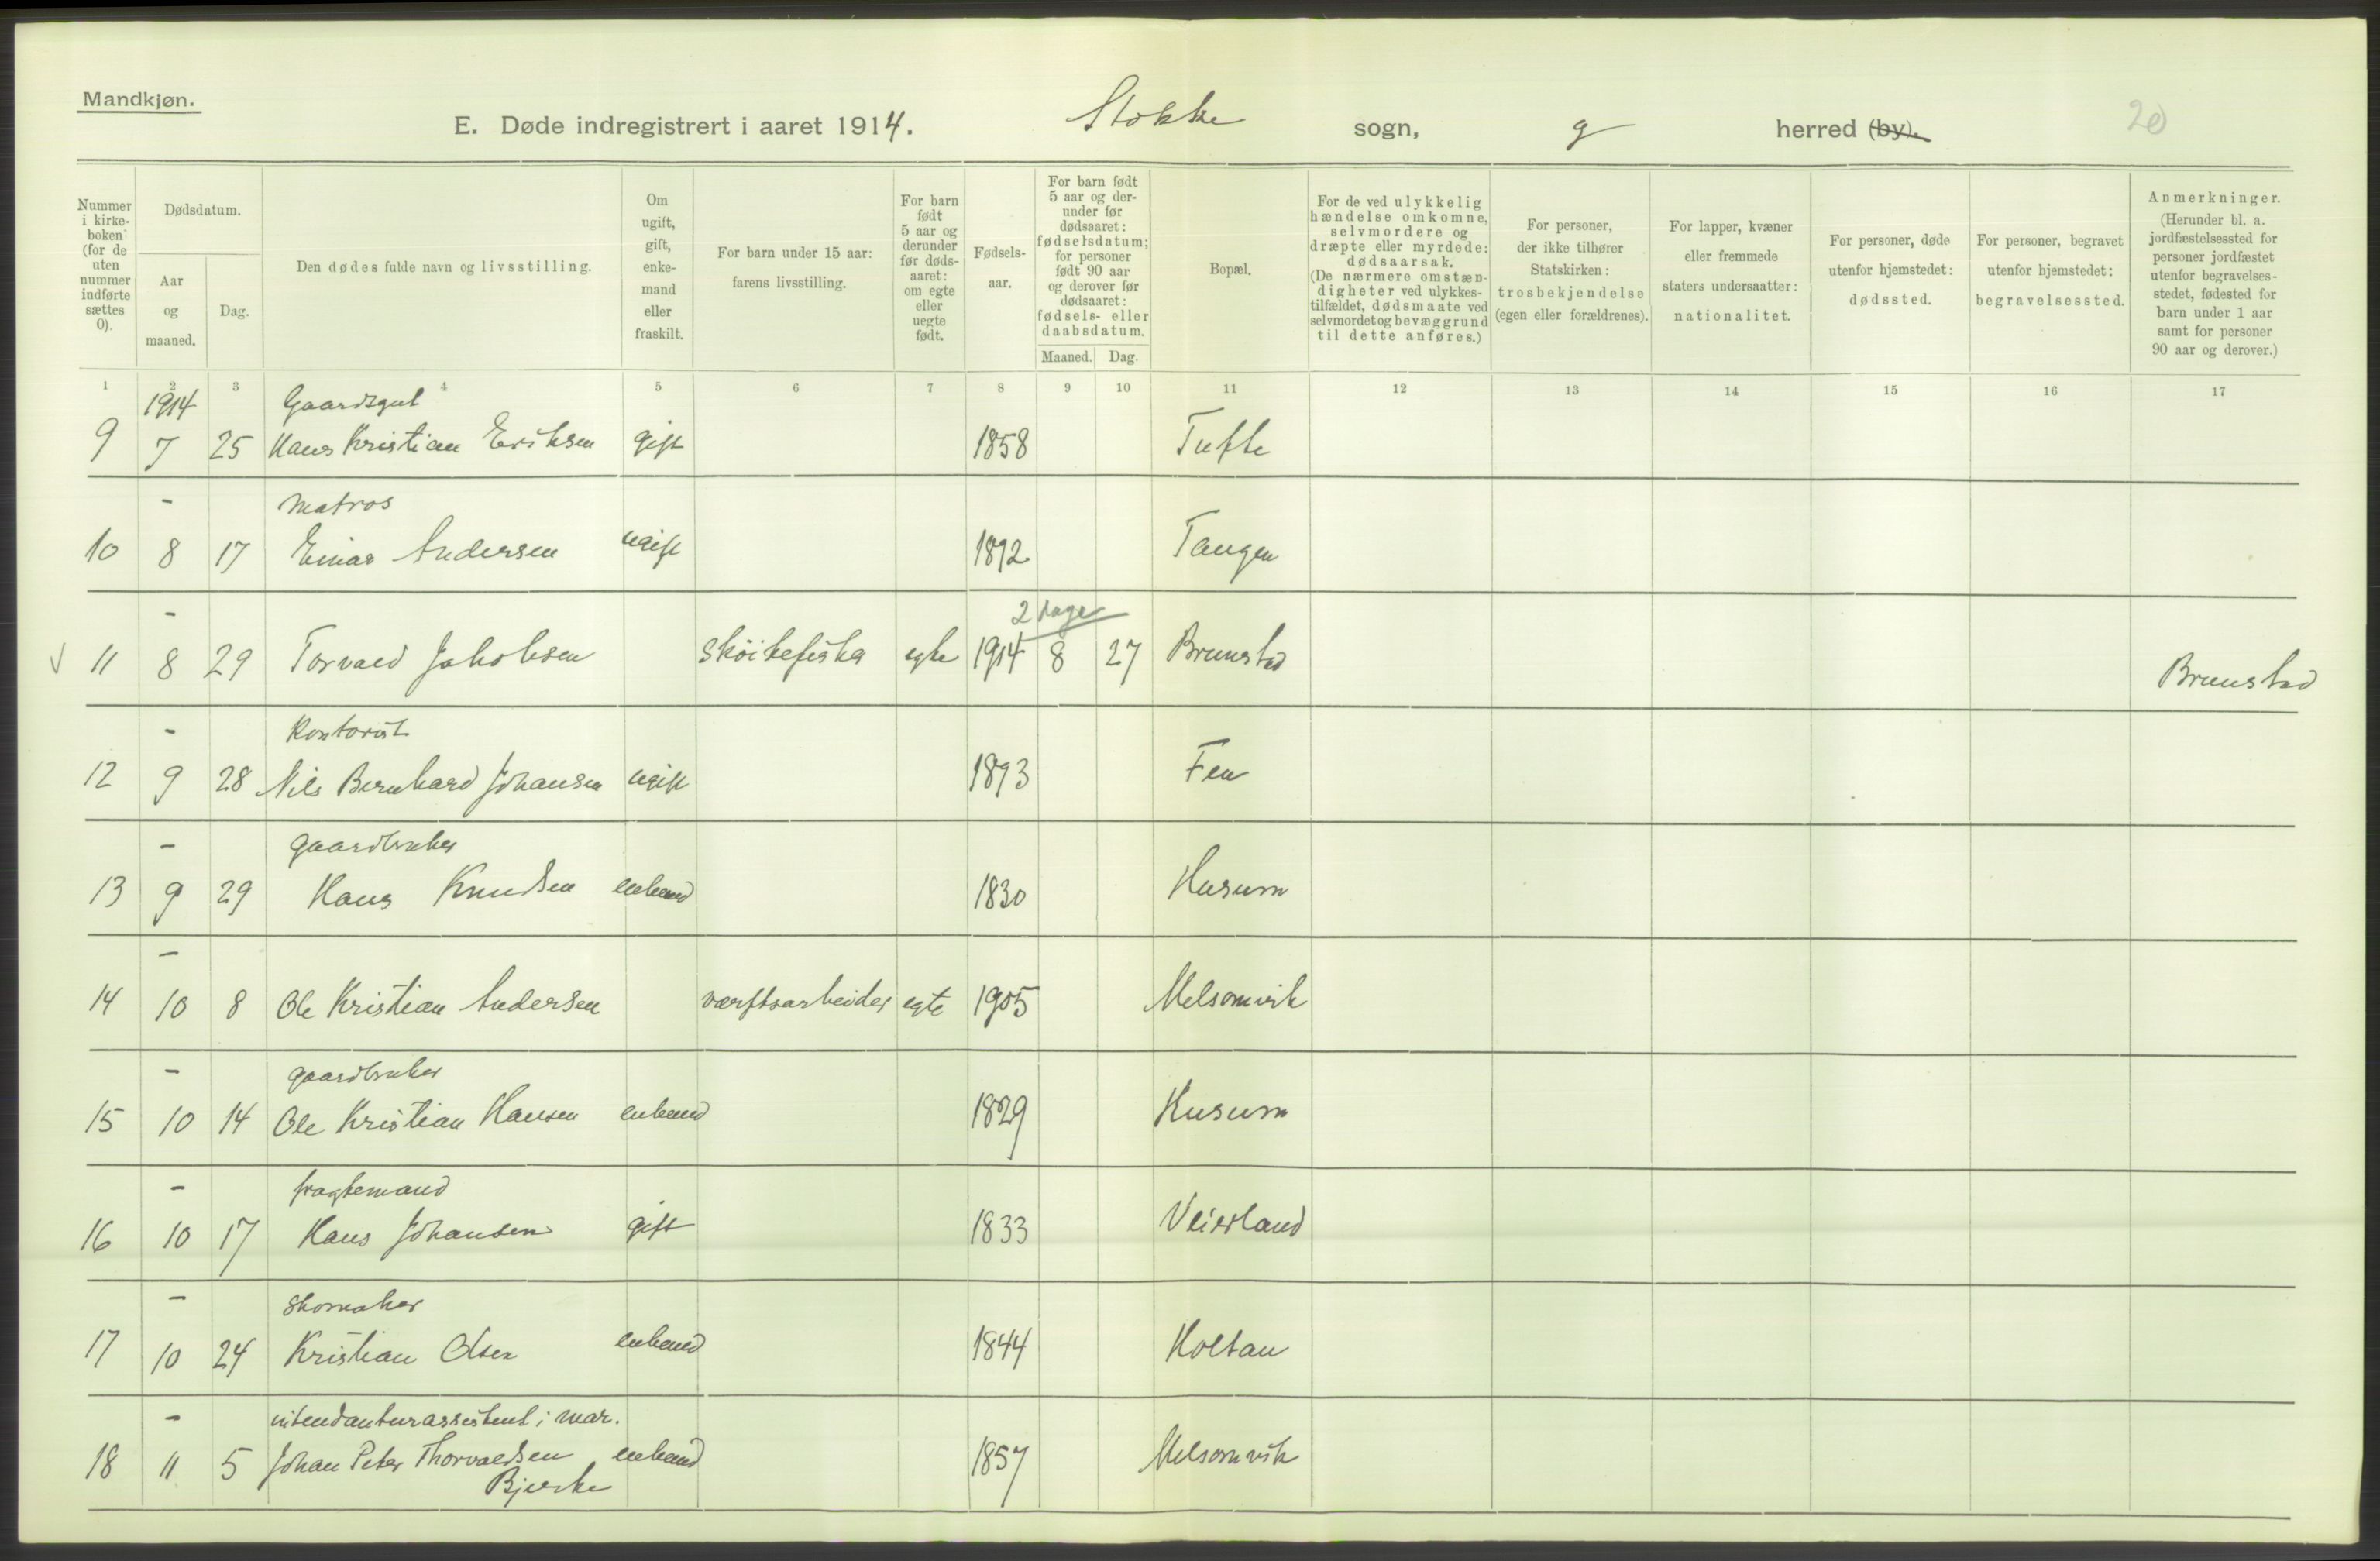 Mandkjøn.
E. Døde indregistrert i aaret 1914. Stokke sogn, g herred (by). 20
Nummer i kirke-boken (for de uten nummer indførte sættes 0).
Dødsdatum.
Aar og maaned.
Dag.
Den dødes fulde navn og livsstilling.
Om ugift, gift, enke-mand eller fraskilt.
For barn under 15 aar: farens livsstilling.
For barn født 5 aar og derunder før døds-aaret: om egte eller uegte født.
Fødsels-aar.
For barn født 5 aar og der-under før dødsaaret: fødselsdatum; for personer født 90 aar og derover før dødsaaret: fødsels- eller daabsdatum.
Maaned. Dag.
Bopæl.
For de ved ulykkelig hændelse omkomne, selvmordere og dræpte eller myrdede: dødsaarsak. (De nærmere omstæn-digheter ved ulykkes-tilfældet, dødsmaate ved selvmordet og bevæggrund til dette anføres.)
For personer, der ikke tilhører Statskirken: trosbekjendelse (egen eller forældrenes).
For lapper, kvæner eller fremmede staters undersaatter: nationalitet.
For personer, døde utenfor hjemstedet: dødssted.
For personer, begravet utenfor hjemstedet: begravelsessted.
Anmerkninger. (Herunder bl. a. jordfæstelsessted for personer jordfæstet utenfor begravelses-stedet, fødested for barn under 1 aar samt for personer 90 aar og derover.)
1 2 3 4 5 6 7 8 9 10 11 12 13 14 15 16 17
1914 Gaardsgut
9 7 25 Hans Kristian Eriksen gift 1858 Tufte
- Matros
10 8 17 Einar Andersen ugift 1892 Tangen
- 2 dage
11 8 29 Torvald Jakobsen skøitefisker egte 1914 8 27 Brunstad Brunstad
- Kontorist
12 9 28 Nils Bernhard Johansen ugift 1893 Fen
- gaardbruker
13 9 29 Hans Knudsen enkemd 1830 Husum
-
14 10 8 Ole Kristian Andersen værftsarbeider egte 1905 Melsomvik
- gaardbruker
15 10 14 Ole Kristian Hansen enkemd 1829 Husum
- fragtemand
16 10 17 Hans Johansen gift 1833 Veierland
- skomaker
17 10 24 Kristian Olsen enkemd 1844 Holtan
- intendanturassistent i mar.
18 11 5 Johan Peter Thorvaldsen enkemd 1857 Melsomvik
Bjerke